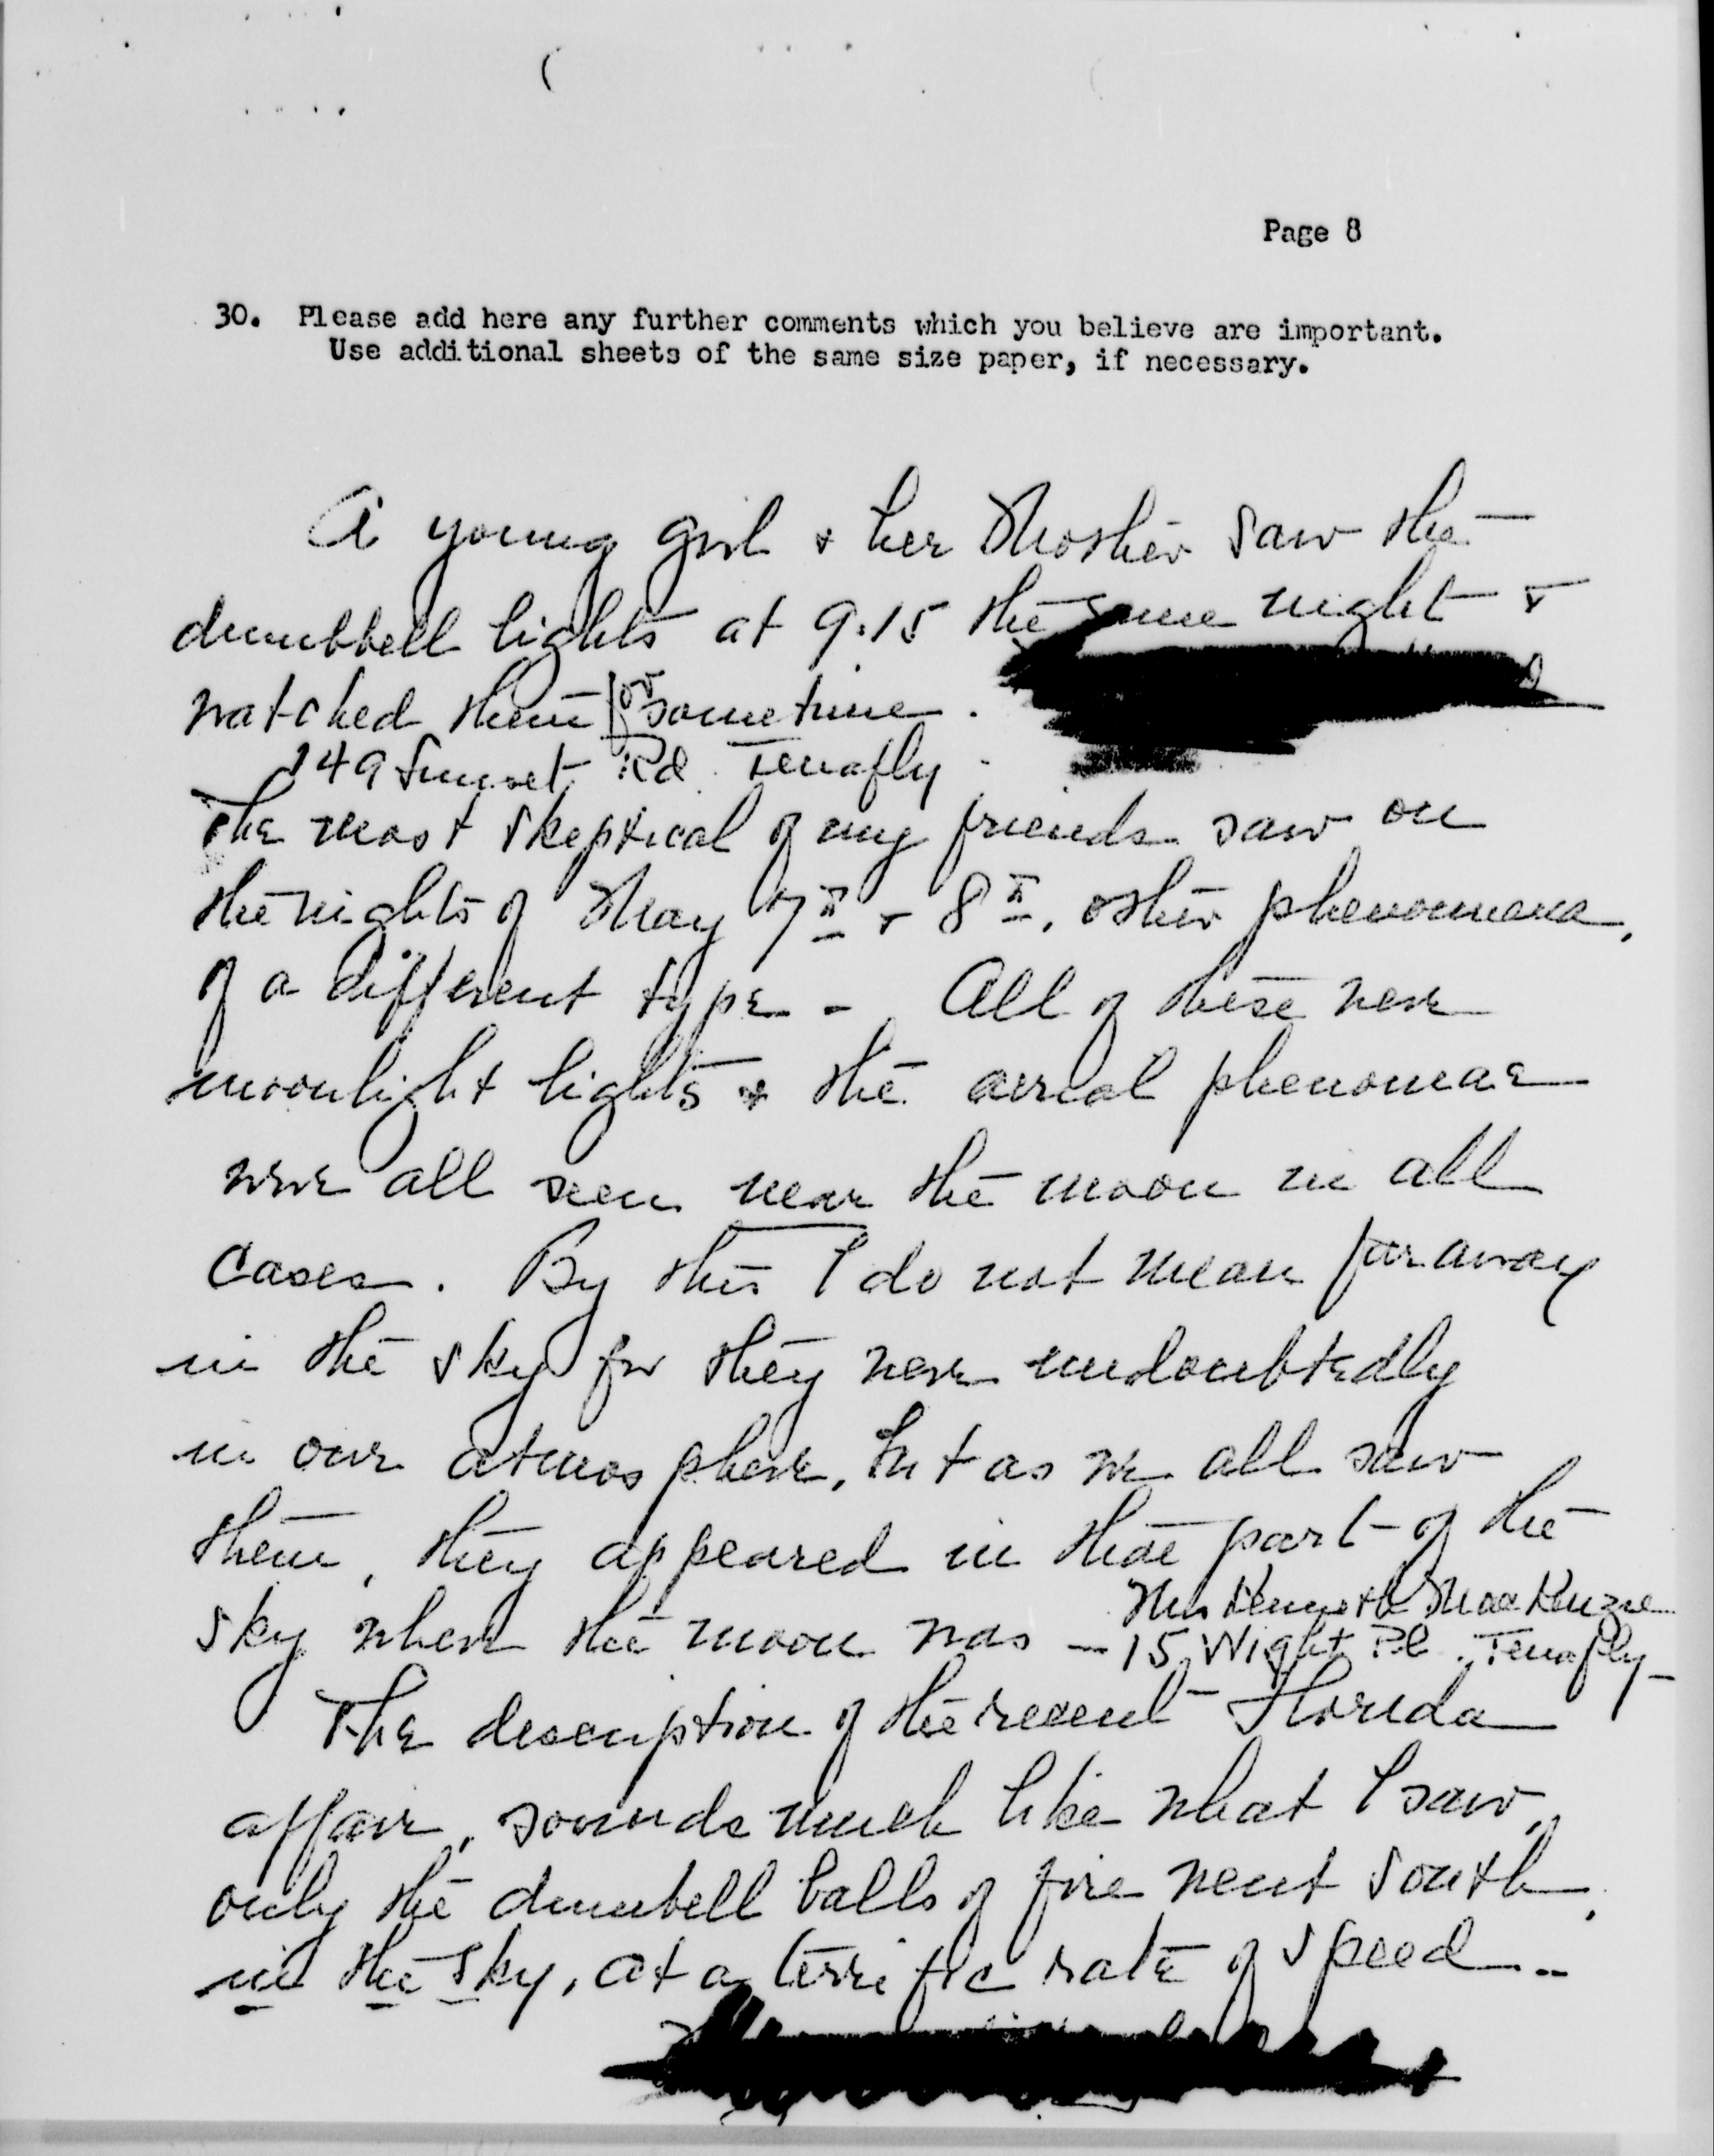 Page 8
30. Please add here any further comments which you believe are important.
Use additional sheets of the same size paper, if necessary.
A young girl & her Mother saw the
dumbbell lights at 9.15 the same night &
watched them for sometime.
149 Sunset Rd. Tenafly.
The most skeptical of my friends saw on
the nights of May 7th & 8th, other phenomena,
of a different type - All of these were
moonlight lights & the aerial phenomae
were all seen near the moon in all
cases. By this I do not mean far away
in the sky for they were undoubtedly
in our atmosphere, but as we all saw
them, they appeared in that part of the
sky where the moon was - Mrs Kenneth MacKenzie
15 Wight Pl. Tenafly -
The description of the recent Florida
affair, sounds much like what I saw,
only the dumbell balls of fire went south,
in the sky, at a terrific rate of speed --